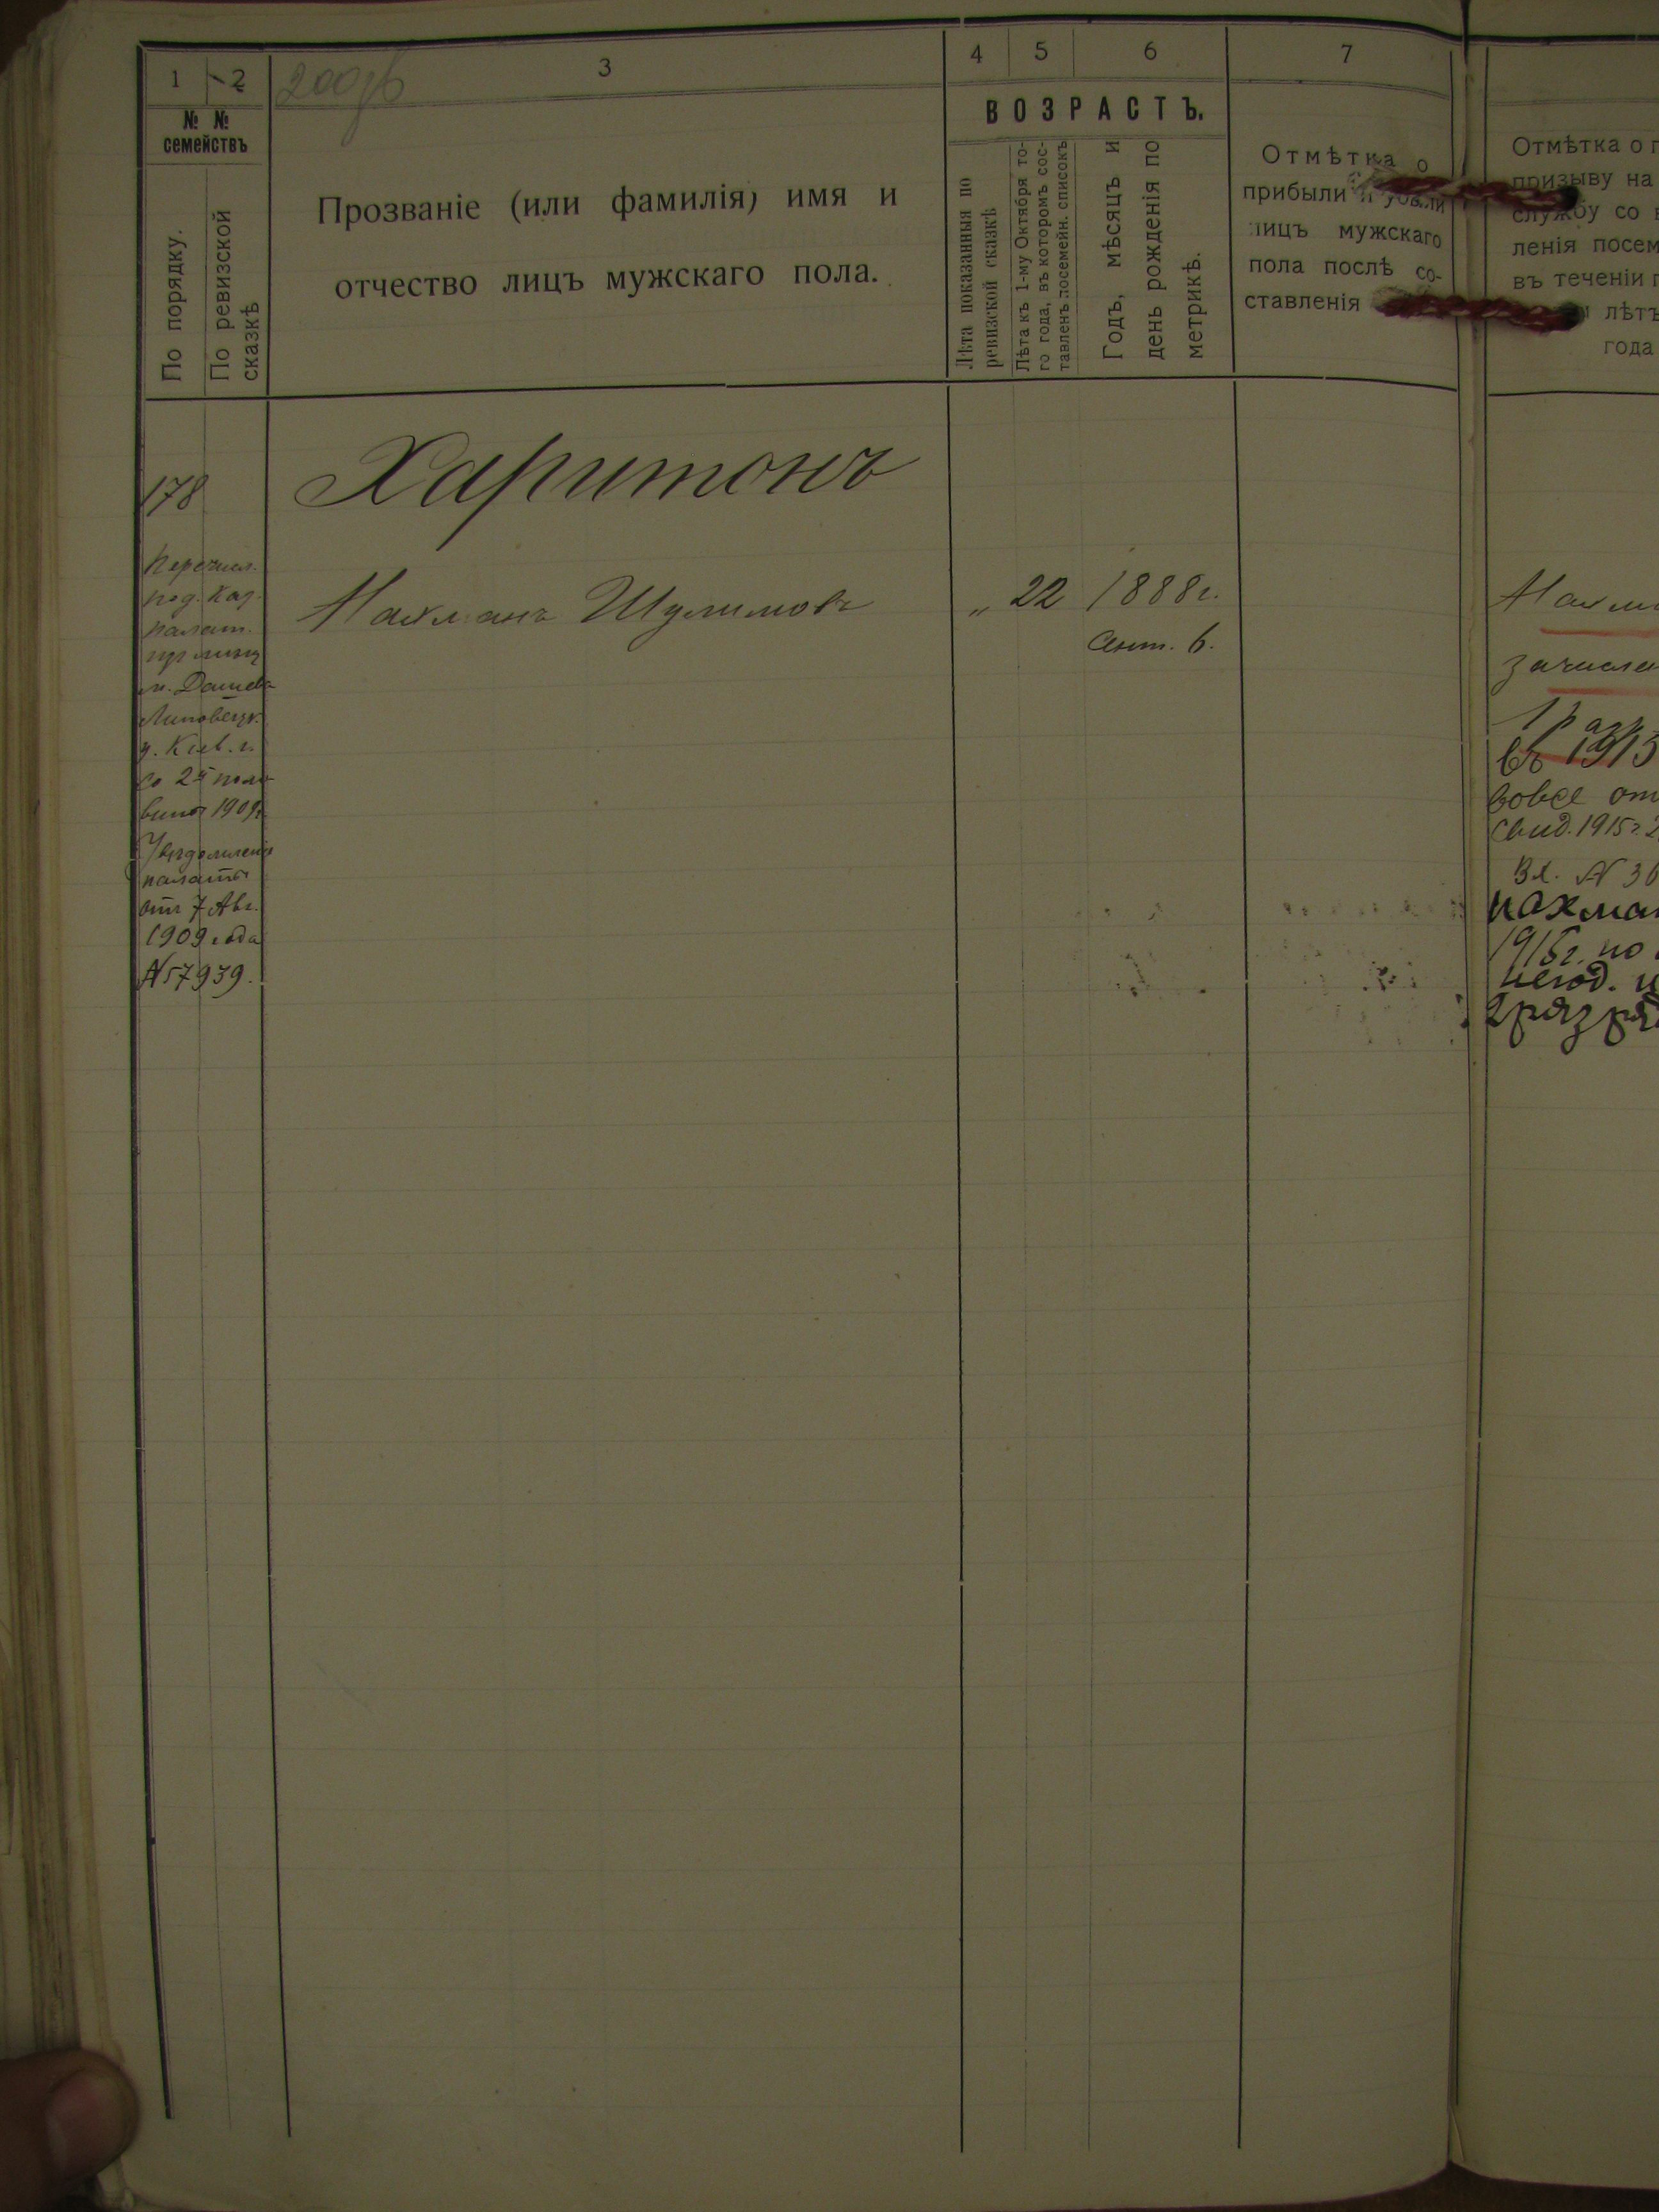 1 2 3 4 5 6 7
200об
№ № семействъ
По порядку.
По ревизской сказкѣ
Прозваніе (или фамилія) имя и
отчество лицъ мужскаго пола.
ВОЗРАСТЪ.
Лѣта показанныя по
ревизской сказкѣ
Лѣта къ 1-му Октября то-
го года, въ которомъ сос-
тавленъ посемейн. списокъ
Годъ, мѣсяцъ и
день рожденія по
метрикѣ.
Отмѣтка о
прибыли и убыли
лицъ мужскаго
пола послѣ со-
ставленія
Отмѣтка о п
призыву на
службу со в
ленія посем
въ теченіи п
лѣтъ
года
178
Харитонъ
Перечисл.
под. Каз.
палат.
из мѣщ
м. Дашева
Липовецк.
у. Кіев. г.
со 2й поло
вины 1909г.
Увѣдомленіе
палаты
отъ 7 Авг.
1909 года
№57939.
Нахманъ Шулимовъ „ 22 1888г.
Сент. 6.
Нахма
зачисле
1 разр
въ 1915
вовсе
Свид. 1915г. 2
Вл. № 30
Нахман
1916г. по
негод. и
2 разря